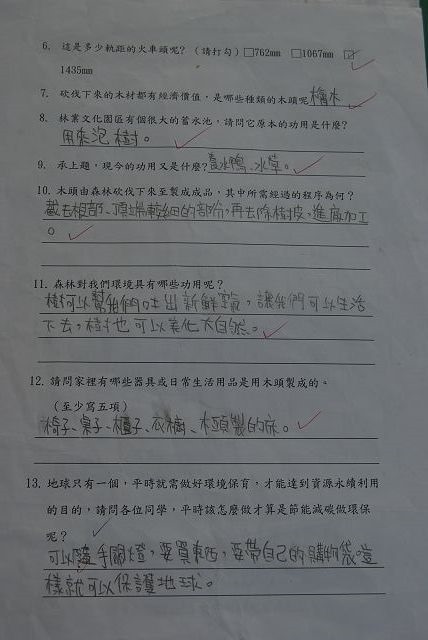 6. 這是多少軌距的火車頭呢？（請打勾）□762mm □1067mm ☑
1435mm
7. 砍伐下來的木材都有經濟價值，是哪些種類的木頭呢 檜木
8. 林業文化園區有個很大的蓄水池，請問它原本的功用是什麼？
用來泡樹。
9. 承上題，現今的功用又是什麼？養水鴨、水草。
10. 木頭由森林砍伐下來至製成成品，其中所需經過的程序為何？
截去根部、頂端較細的部份，再去除樹皮，進廠加工
。
11. 森林對我們環境具有哪些功用呢？
樹可以幫我們吐出新鮮空氣，讓我們可以生活
下去，樹也可以美化大自然。
12. 請問家裡有哪些器具或日常生活用品是用木頭製成的。
（至少寫五項）
椅子、桌子、櫃子、衣櫥、木頭製的床。
13. 地球只有一個，平時就需做好環境保育，才能達到資源永續利用
的目的，請問各位同學，平時該怎麼做才算是節能減碳做環保
呢？
可以隨手關燈，要買東西，要帶自己的購物袋，這
樣就可以保護地球。